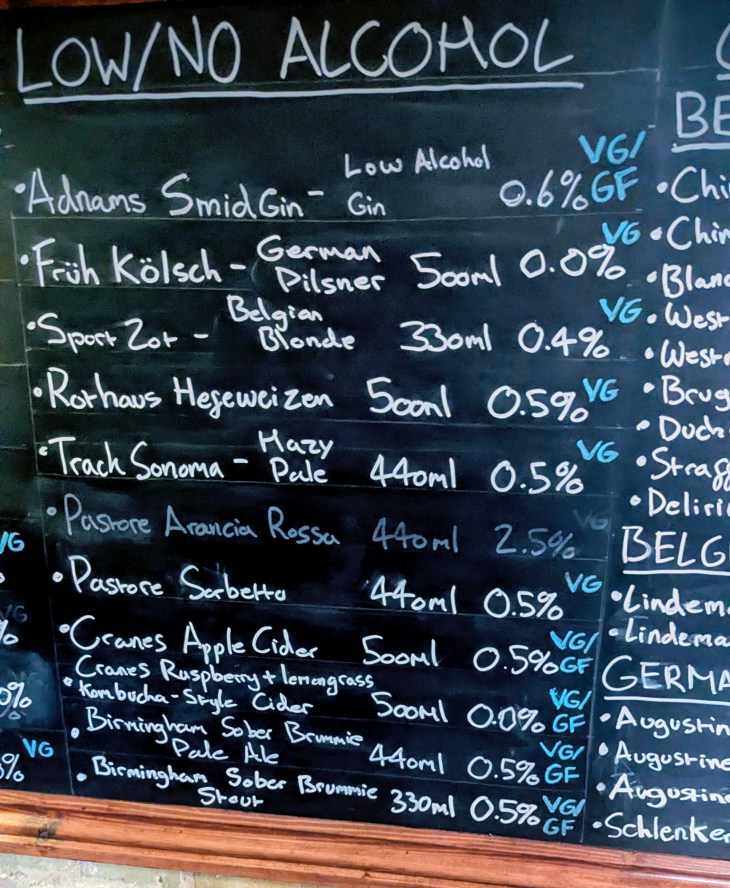 LOW/NO ALCOHOL
• Adnams SmidGin - Low Alcohol Gin 0.6% VG/GF
• Früh Kölsch - German Pilsner 500ml 0.0% VG
• Sport Zot - Belgian Blonde 330ml 0.4% VG
• Rothaus Hefeweizen 500ml 0.5% VG
• Track Sonoma - Hazy Pale 440ml 0.5% VG
• Pastore Arancia Rossa 440ml 2.5% VG
• Pastore Sorbetto 440ml 0.5% VG
• Cranes Apple Cider 500ml 0.5% VG/GF
• Cranes Raspberry + lemongrass
Kombucha-Style Cider 500ml 0.0% VG/GF
• Birmingham Sober Brummie
Pale Ale 440ml 0.5% VG/GF
• Birmingham Sober Brummie
Stout 330ml 0.5% VG/GF
VG
%
VG
%
0%
VG
%
BE
• Chi
• Chim
• Blan
• West
• West
• Brug
• Duch
• Straff
• Deliri
BELG
• Lindem
• Lindema
GERMA
• Augustin
• Augustine
• Augustine
• Schlenker